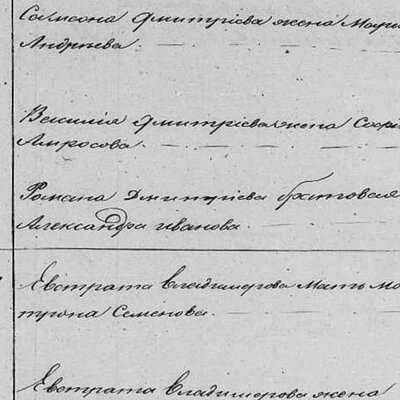 Самсона Дмитріева жена Мар
Андреева.
Василія Дмитріева жена Софі
Амросова.
Романа Дмитріева братовая
Александра иванова.
Евстрата Владимерова мать Ма
трона Семенова.
Евстрата Владимерова жена